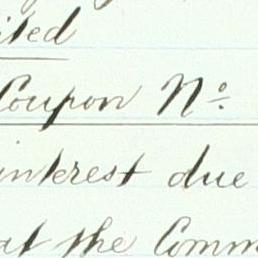 ited
Coupon No.
interest due
at the Comm